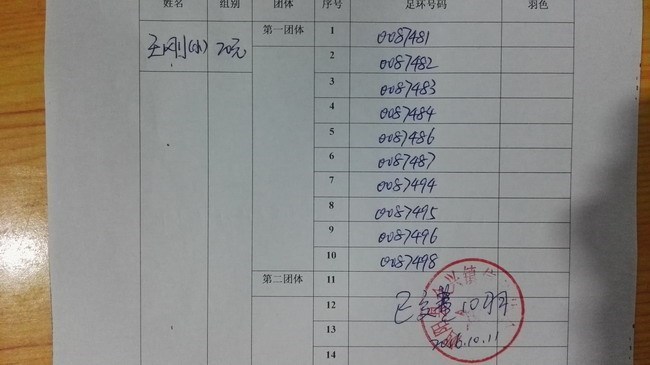 姓名 组别 团体 序号 足环号码 羽色
王刚(小) 20元 第一团体 1 0087481
2 0087482
3 0087483
4 0087484
5 0087486
6 0087487
7 0087494
8 0087495
9 0087496
10 0087498
第二团体 11
12
13
2016.10.11
14